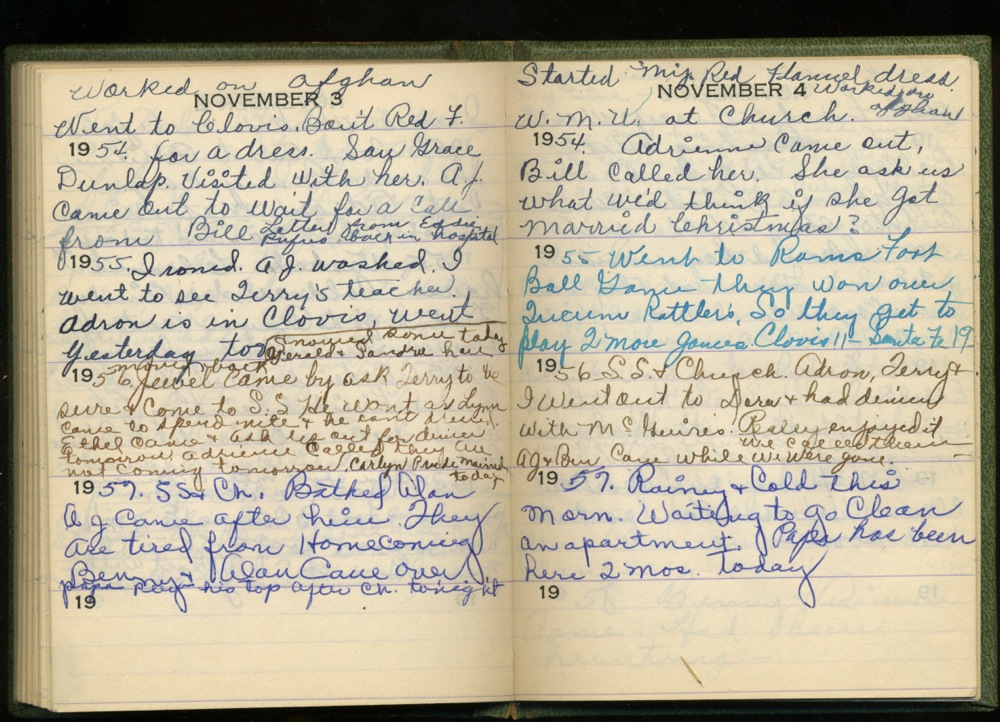 Worked on Afghan
NOVEMBER 3
Went to Clovis. Bout Red F.
1954. for a dress. Saw Grace
Dunlap. Visited with her. A.J.
Came out to wait for a Call
from Bill Letter from Eddie
Rufus back in hospital
1955. I roned. A.J. washed. I
went to see Terry's teacher.
Adron is in Clovis, went
yesterday too moved some today
moving back Gerald & Sandra here
1956. Jewel Came by ask Terry to be
sure & Come to S.S. He wont as Lynn
came to spend nite & he cant
Ethel Came & ask us out for dinner
tomorrow. Adrienne Called they are
not Coming tomorrow. Carlyn Pruide married
today
1957. SS & Ch. Bathed Alan
A J Came after him. They
are tired from Homecoming
Benny & Alan Came over
papa play his top after Ch. tonight
19
Started My Red Flannel dress.
NOVEMBER 4 Worked on
afghan
W. M. U. at Church.
1954. Adrienne Came out,
Bill Called her. She ask us
what we'd think if she got
married Christmas?
1955 Went to Rams Foot
Ball Game they won over
Tucum Rattlers, So they get to
play 2 more games. Clovis 11 - Santa Fe 19
1956 S.S. & Church. Adron, Terry &
I Went out to Dora & had dinner
with McGuires. enjoyed it
We called them
AJ & Ben Came while we were gone.
1957. Rainey & Cold this
morn. Waiting to go Clean
an apartment. Papa has been
here 2 mos. today
19